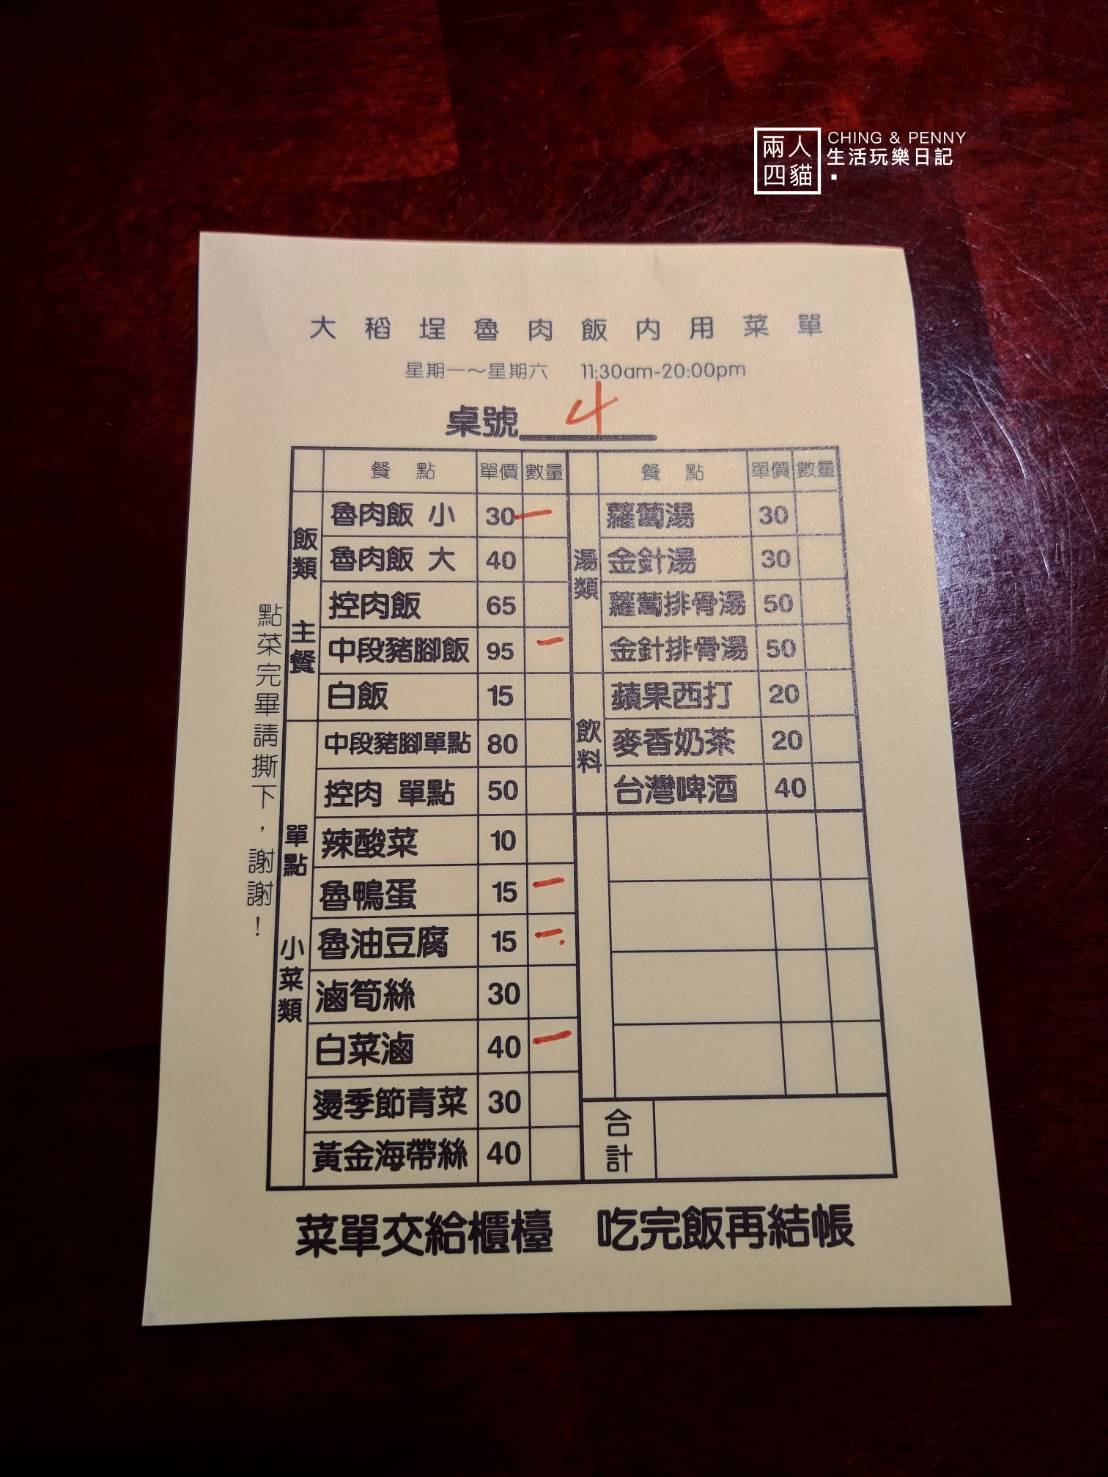 兩人
四貓
CHING & PENNY
生活玩樂日記
大稻埕魯肉飯內用菜單
星期一～星期六 11:30am-20:00pm
桌號 4
餐點 單價 數量 餐點 單價 數量
飯類 主餐
魯肉飯 小 30 一
魯肉飯 大 40
控肉飯 65
中段豬腳飯 95 一
白飯 15
單點 小菜類
中段豬腳單點 80
控肉 單點 50
辣酸菜 10
魯鴨蛋 15 一
魯油豆腐 15 一
滷筍絲 30
白菜滷 40 一
燙季節青菜 30
黃金海帶絲 40
湯類
蘿蔔湯 30
金針湯 30
蘿蔔排骨湯 50
金針排骨湯 50
飲料
蘋果西打 20
麥香奶茶 20
台灣啤酒 40
合計
點菜完畢請撕下，謝謝！
菜單交給櫃檯 吃完飯再結帳